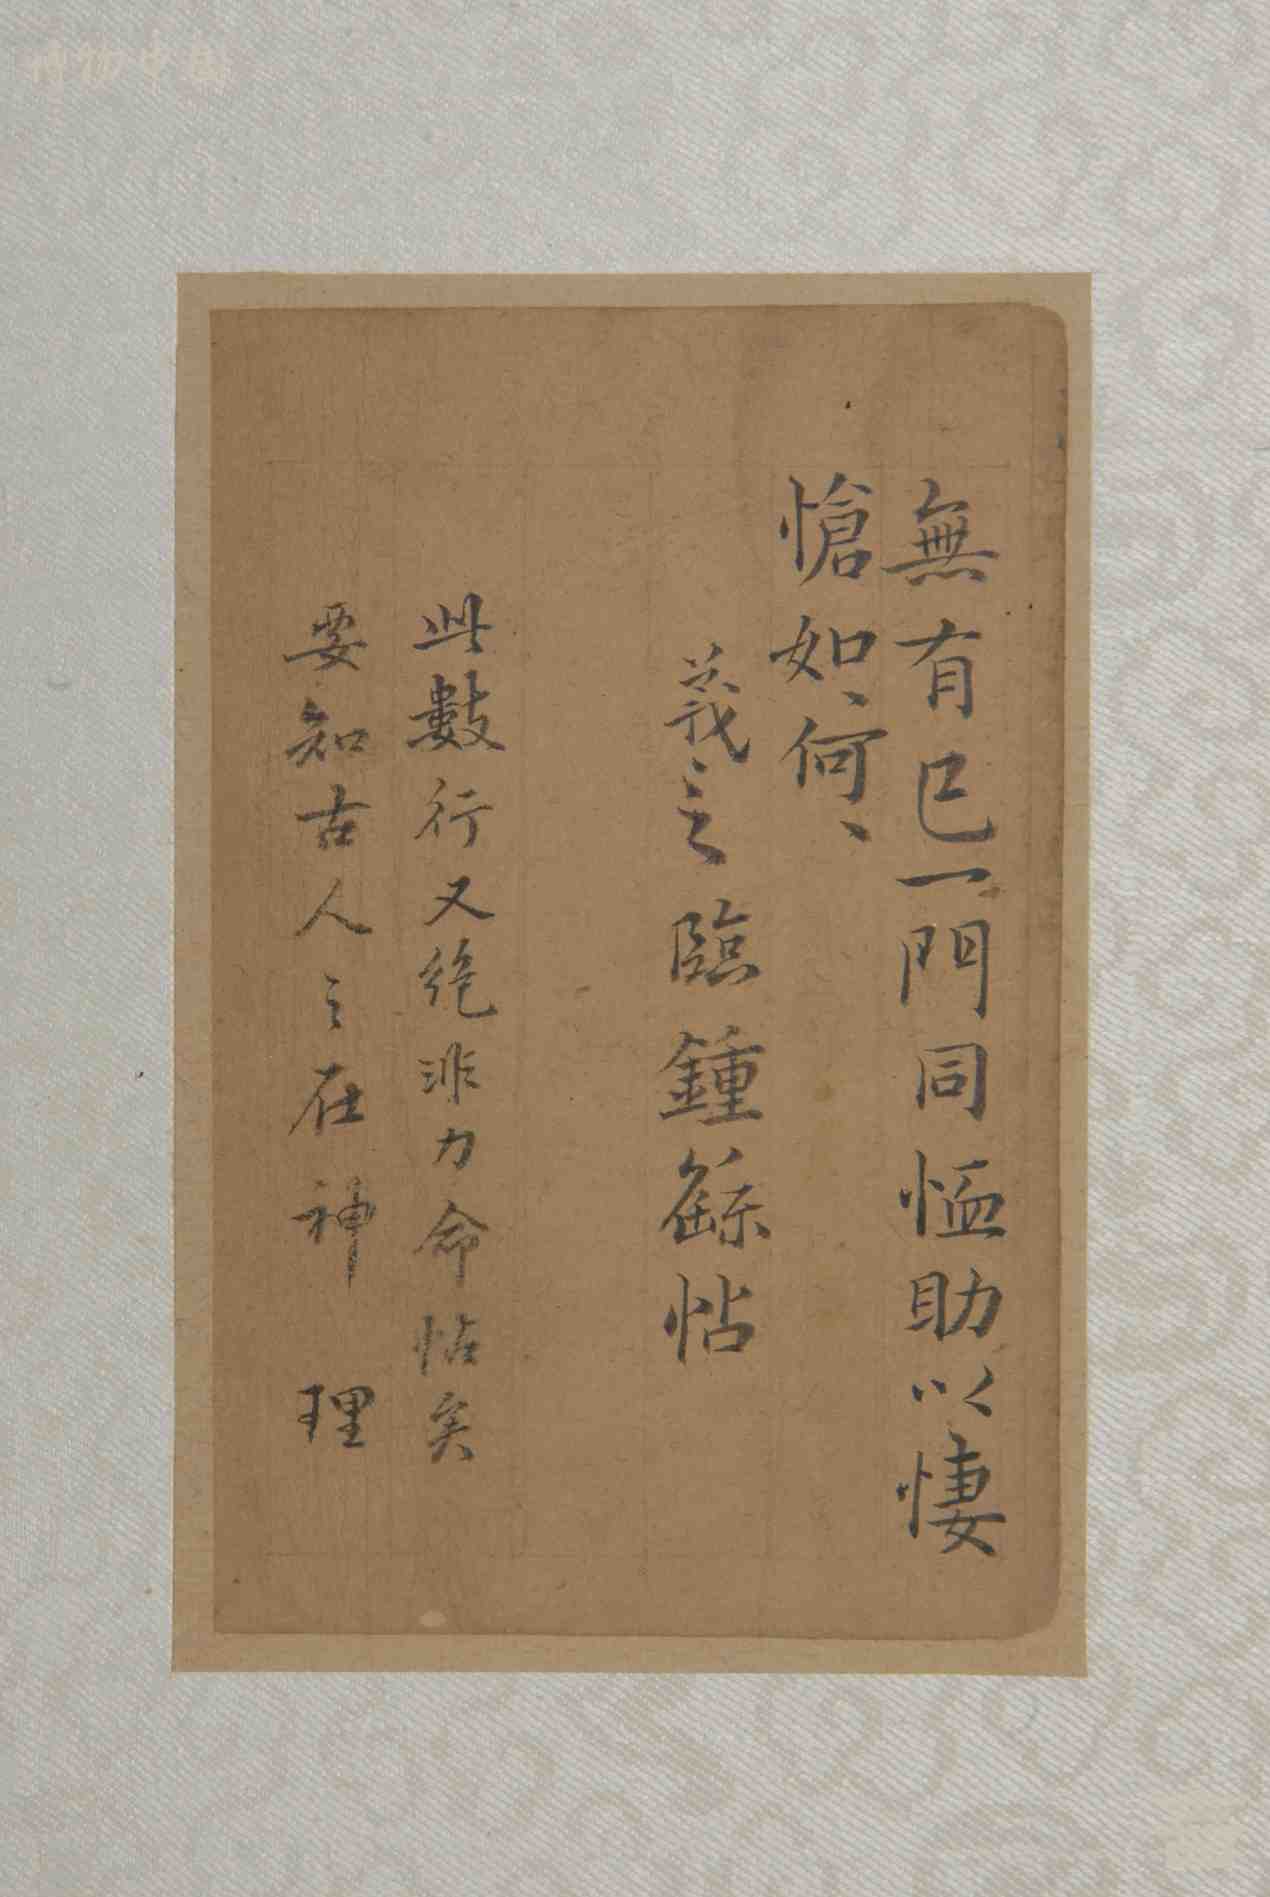 無有已一門同恤助以悽
愴如、何、
羲之臨鍾繇帖
此數行又絶非力命帖矣
要知古人之在神理
博物中国